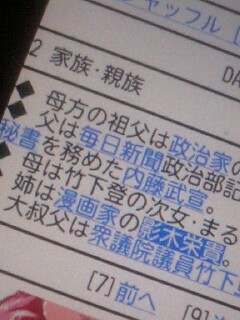 ャッフル
2 家族・親族
◆ 母方の祖父は政治家の
◆ 父は毎日新聞政治部記
秘書を務めた内藤武宣。
◆ 母は竹下登の次女・まる
◆ 姉は漫画家の影木栄貴。
◆ 大叔父は衆議院議員竹下
[7]前へ [9]